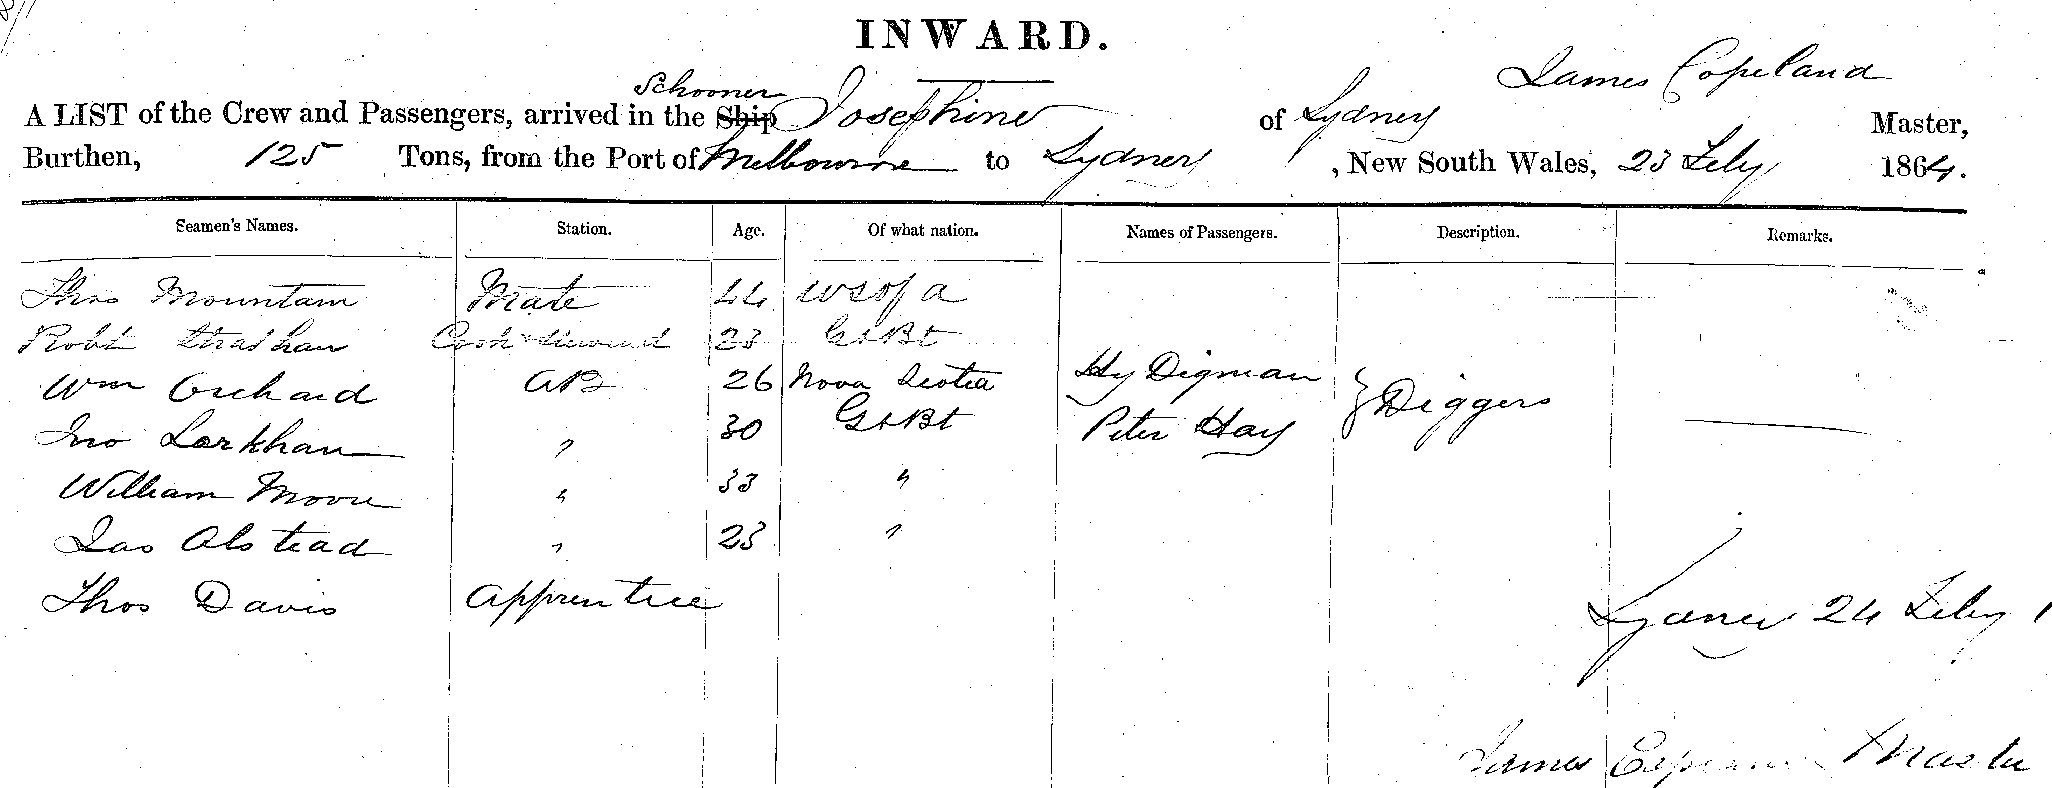 INWARD.
James Copeland
Schooner
A LIST of the Crew and Passengers, arrived in the Ship Josephine of Sydney Master,
Burthen, 125 Tons, from the Port of Melbourne to Sydney, New South Wales, 23 Feby 1864.
Seamen's Names. Station. Age. Of what nation. Names of Passengers. Description. Remarks.
Thos Mountain Mate 44 USofA
Robt Strachan Cook & Steward 23 Gt Bt
Wm Orchard AB 26 Nova Scotia Hy Digman } Diggers
Jno Larkham " 30 Gt Bt Peter Hay
William Moore " 33 "
Jas Alstead " 23 "
Thos Davis Apprentice
Sydney 24 Feby
James Master